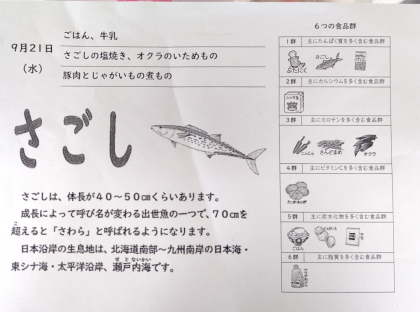 9月21日
(水)
ごはん、牛乳
さごしの塩焼き、オクラのいためもの
豚肉とじゃがいもの煮もの
さごし
さごしは、体長が40～50㎝くらいあります。
成長によって呼び名が変わる出世魚の一つで、70㎝を
超えると「さわら」と呼ばれるようになります。
日本沿岸の生息地は、北海道南部～九州南岸の日本海・
東シナ海・太平洋沿岸、瀬戸内海です。
6つの食品群
1群 主にたんぱく質を多く含む食品群
ぶたにく さごし
2群 主にカルシウムを多く含む食品群
3群 主にカロテンを多く含む食品群
にんじん さんどまめ オクラ
4群 主にビタミンCを多く含む食品群
たまねぎ
5群 主に炭水化物を多く含む食品群
ごはん
6群 主に脂質を多く含む食品群